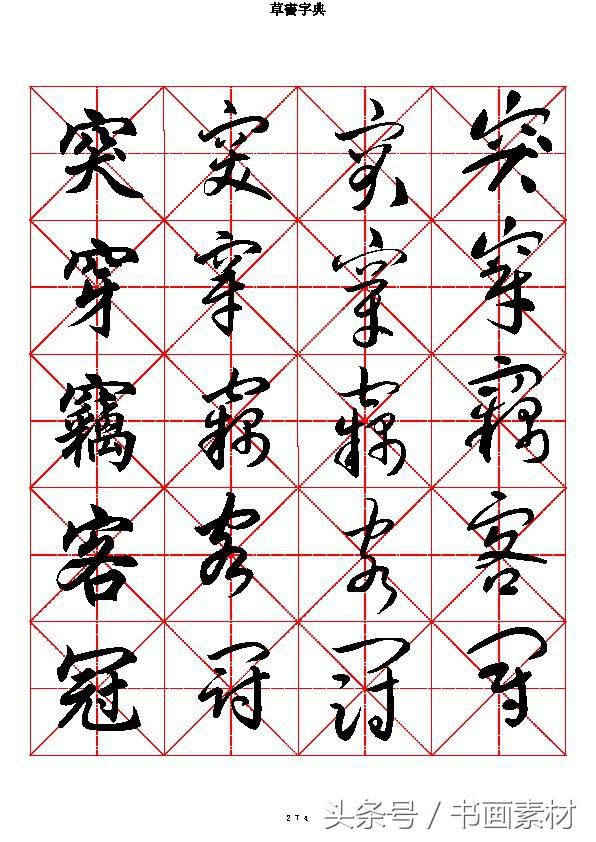 草書字典
突 突 突 突
穿 穿 穿 穿
竊 竊 竊 竊
客 客 客 客
冠 冠 冠 冠
274
头条号 / 书画素材